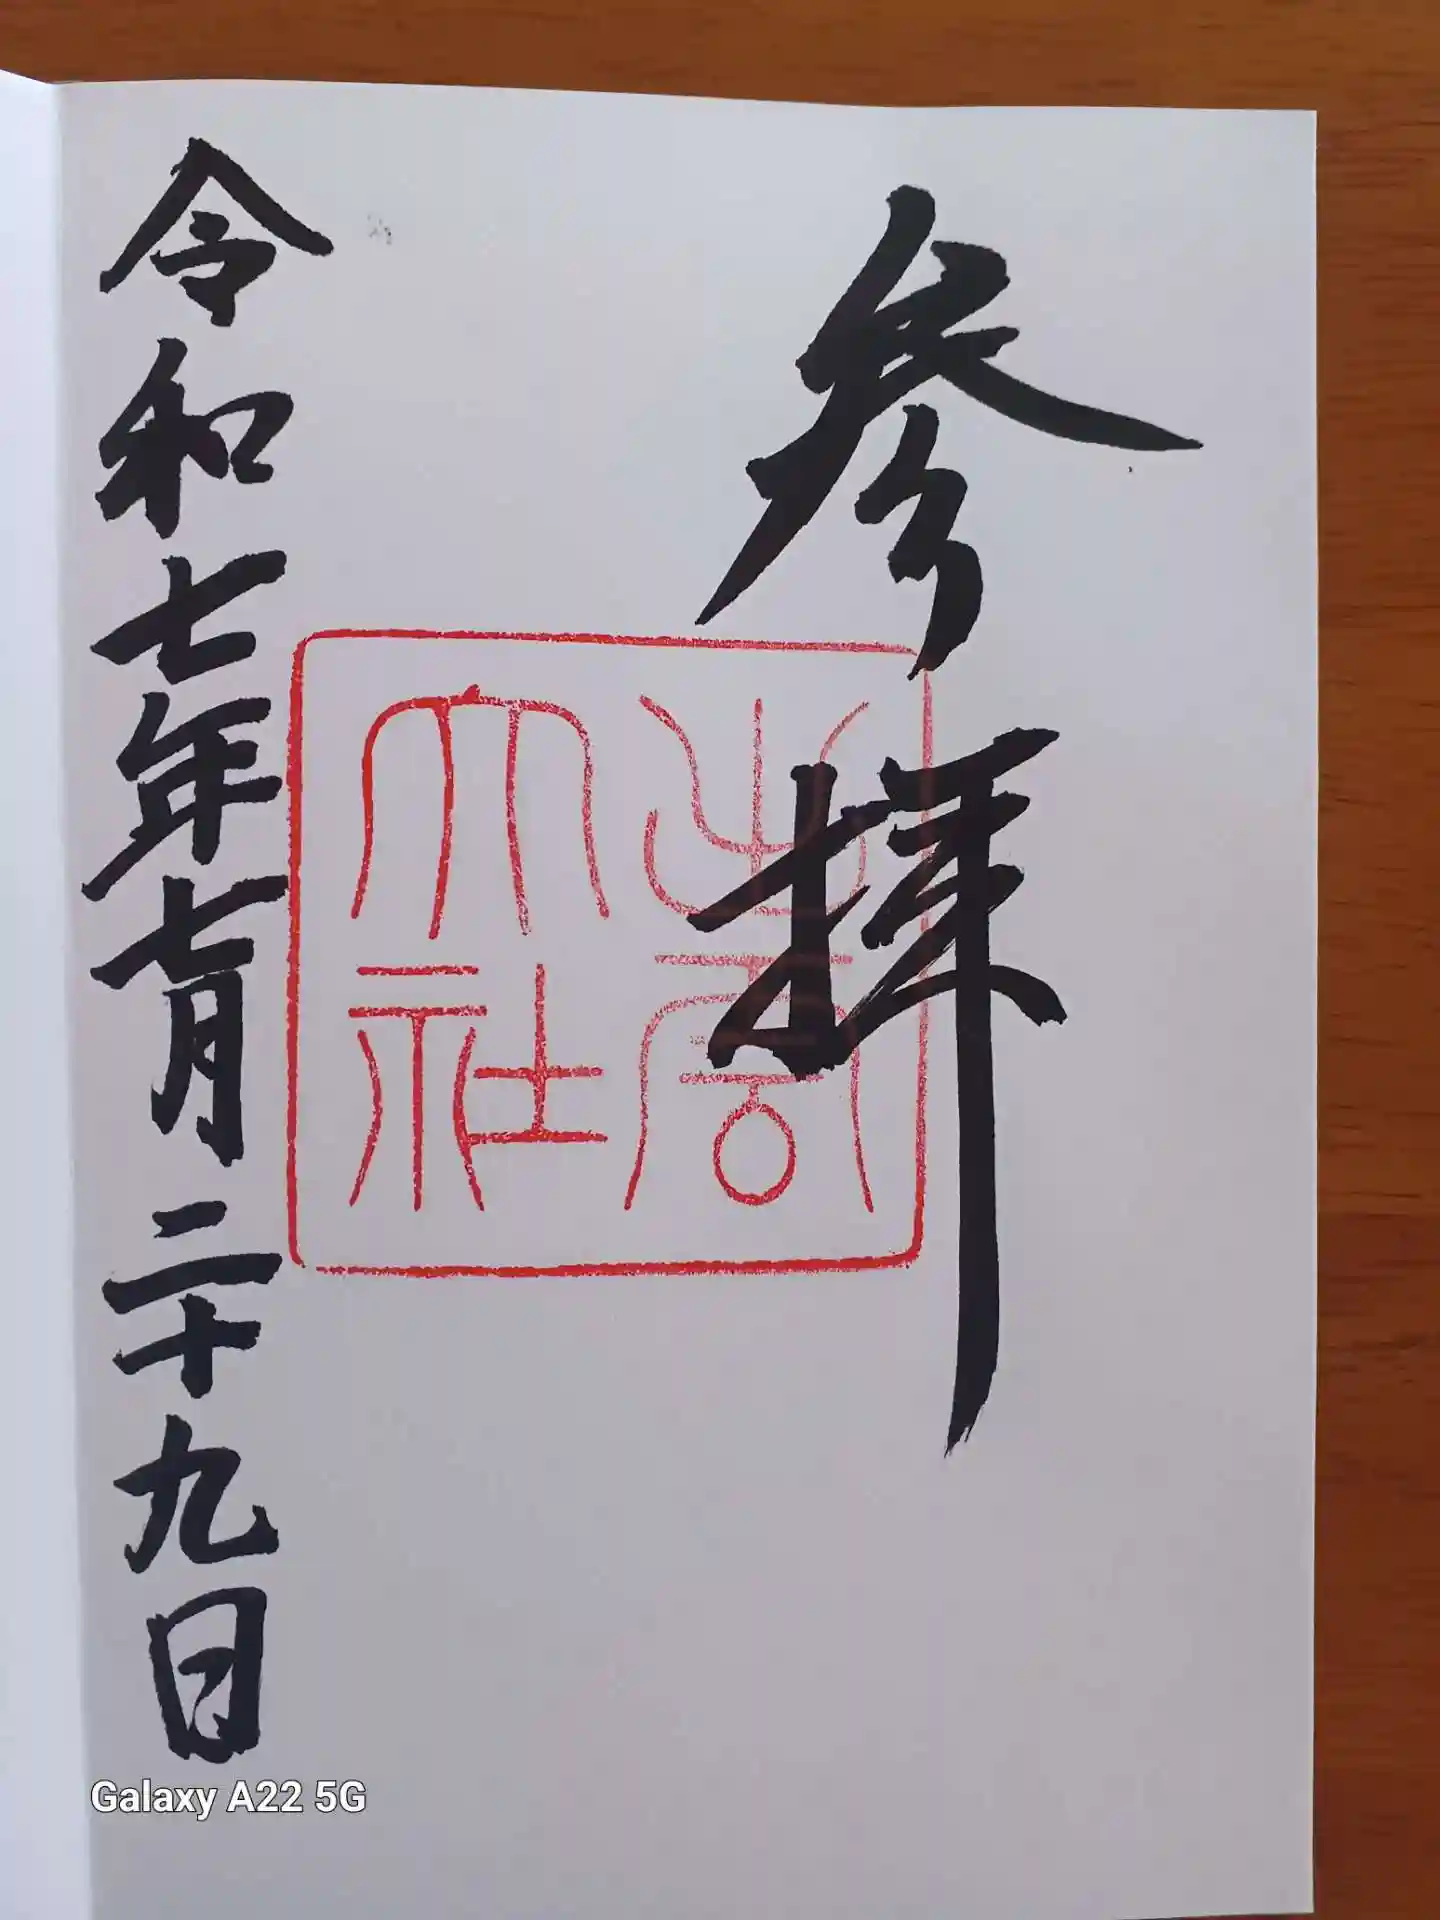 参拝
出雲
大社
令和七年七月二十九日
Galaxy A22 5G